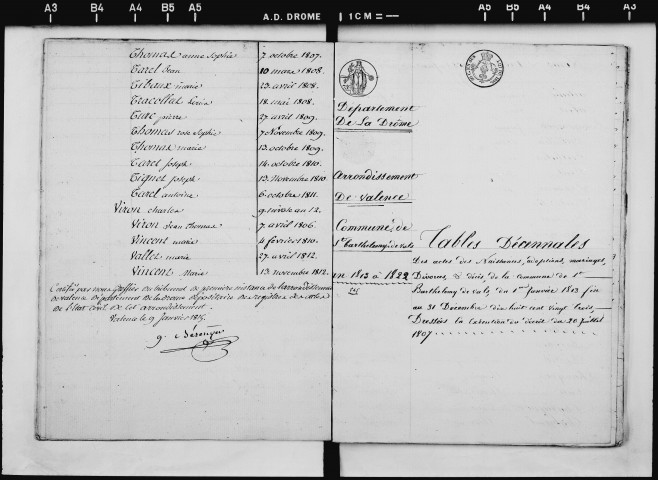 A3 B4 A4 B5 A5 A.D. DROME 1 CM = A5 B5 A4 B4 A3
Thomas anne Sophie 7 octobre 1807.
Tarel Jean 10 mars 1808.
Tibaux marie 23 avril 1808.
Tracollat 18 mai 1808.
Turc pierre 27 avril 1809.
Thomas rose Sophie 7 Novembre 1809.
Thomas marie 13 octobre 1809.
Tarel Joseph 14 octobre 1810.
Joseph 13 Novembre 1810.
Tarel antoine 6 octobre 1811.
Viron charles 9 nivose an 12.
Viron Jean thomas 7 avril 1806.
Vincent marie 4 fevrier 1810.
Vallet marie 27 avril 1812.
Vincent Marie 13 novembre 1812.
Certifié par nous Greffier du tribunal de premiere instance de l'arrondissement
de valence Departement de la drome depositaire des registres des actes
de l'état civil de cet arrondissement.
Valence le 9 Janvier 1815.
Departement
De La Drôme
arrondissement
De valence
Commune de
St Barthelemy de vals
an 1813 à 1822
Tables Décennales
Des actes des Naissances, adoptions, mariages,
Divorces, & décès, de la Commune de St
Barthelemy de vals, du 1er Janvier 1813 fin
au 31 Decembre dix huit cent vingt trois,
Dressées en Exécution du décret du 20 Juillet
1807